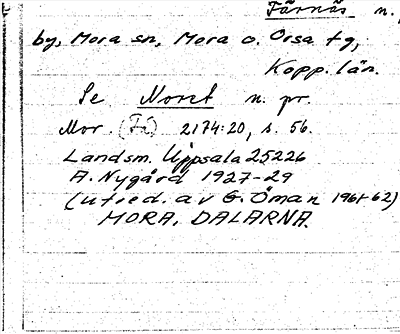 Färnäs n.
by, Mora sn, Mora o. Orsa tg,
Kopp. län.
Se Noret n. pr.
Mor. (Fä) 2174:20, s. 56.
Landsm. Uppsala 25226
A. Nygård 1927-29
(utred. av G. Öman 1961-62)
MORA, DALARNA.